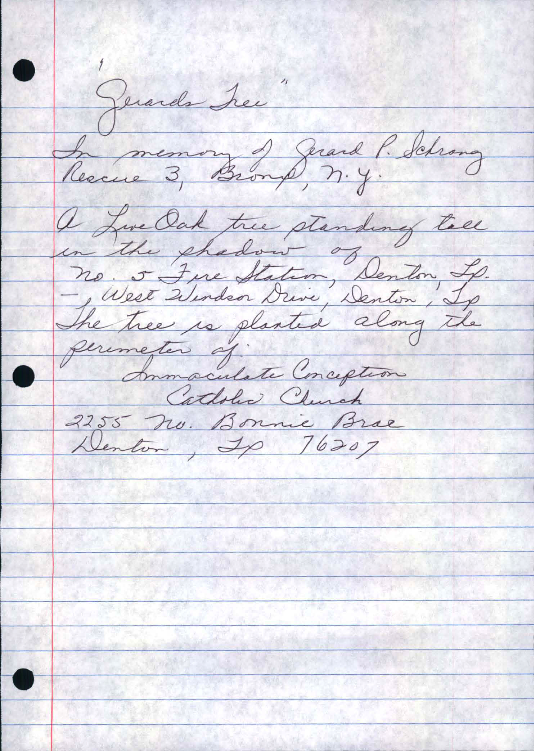 "Gerards Tree"
In memory of Gerard P. Schrang
Rescue 3, Bronx, N.Y.
A Live Oak tree standing tall
in the shadow of
No. 5 Fire Station, Denton, Tx.
-, West Windsor Drive, Denton, Tx
The tree is planted along the
perimeter of:
Immaculate Conception
Catholic Church
2255 No. Bonnie Brae
Denton, Tx 76207